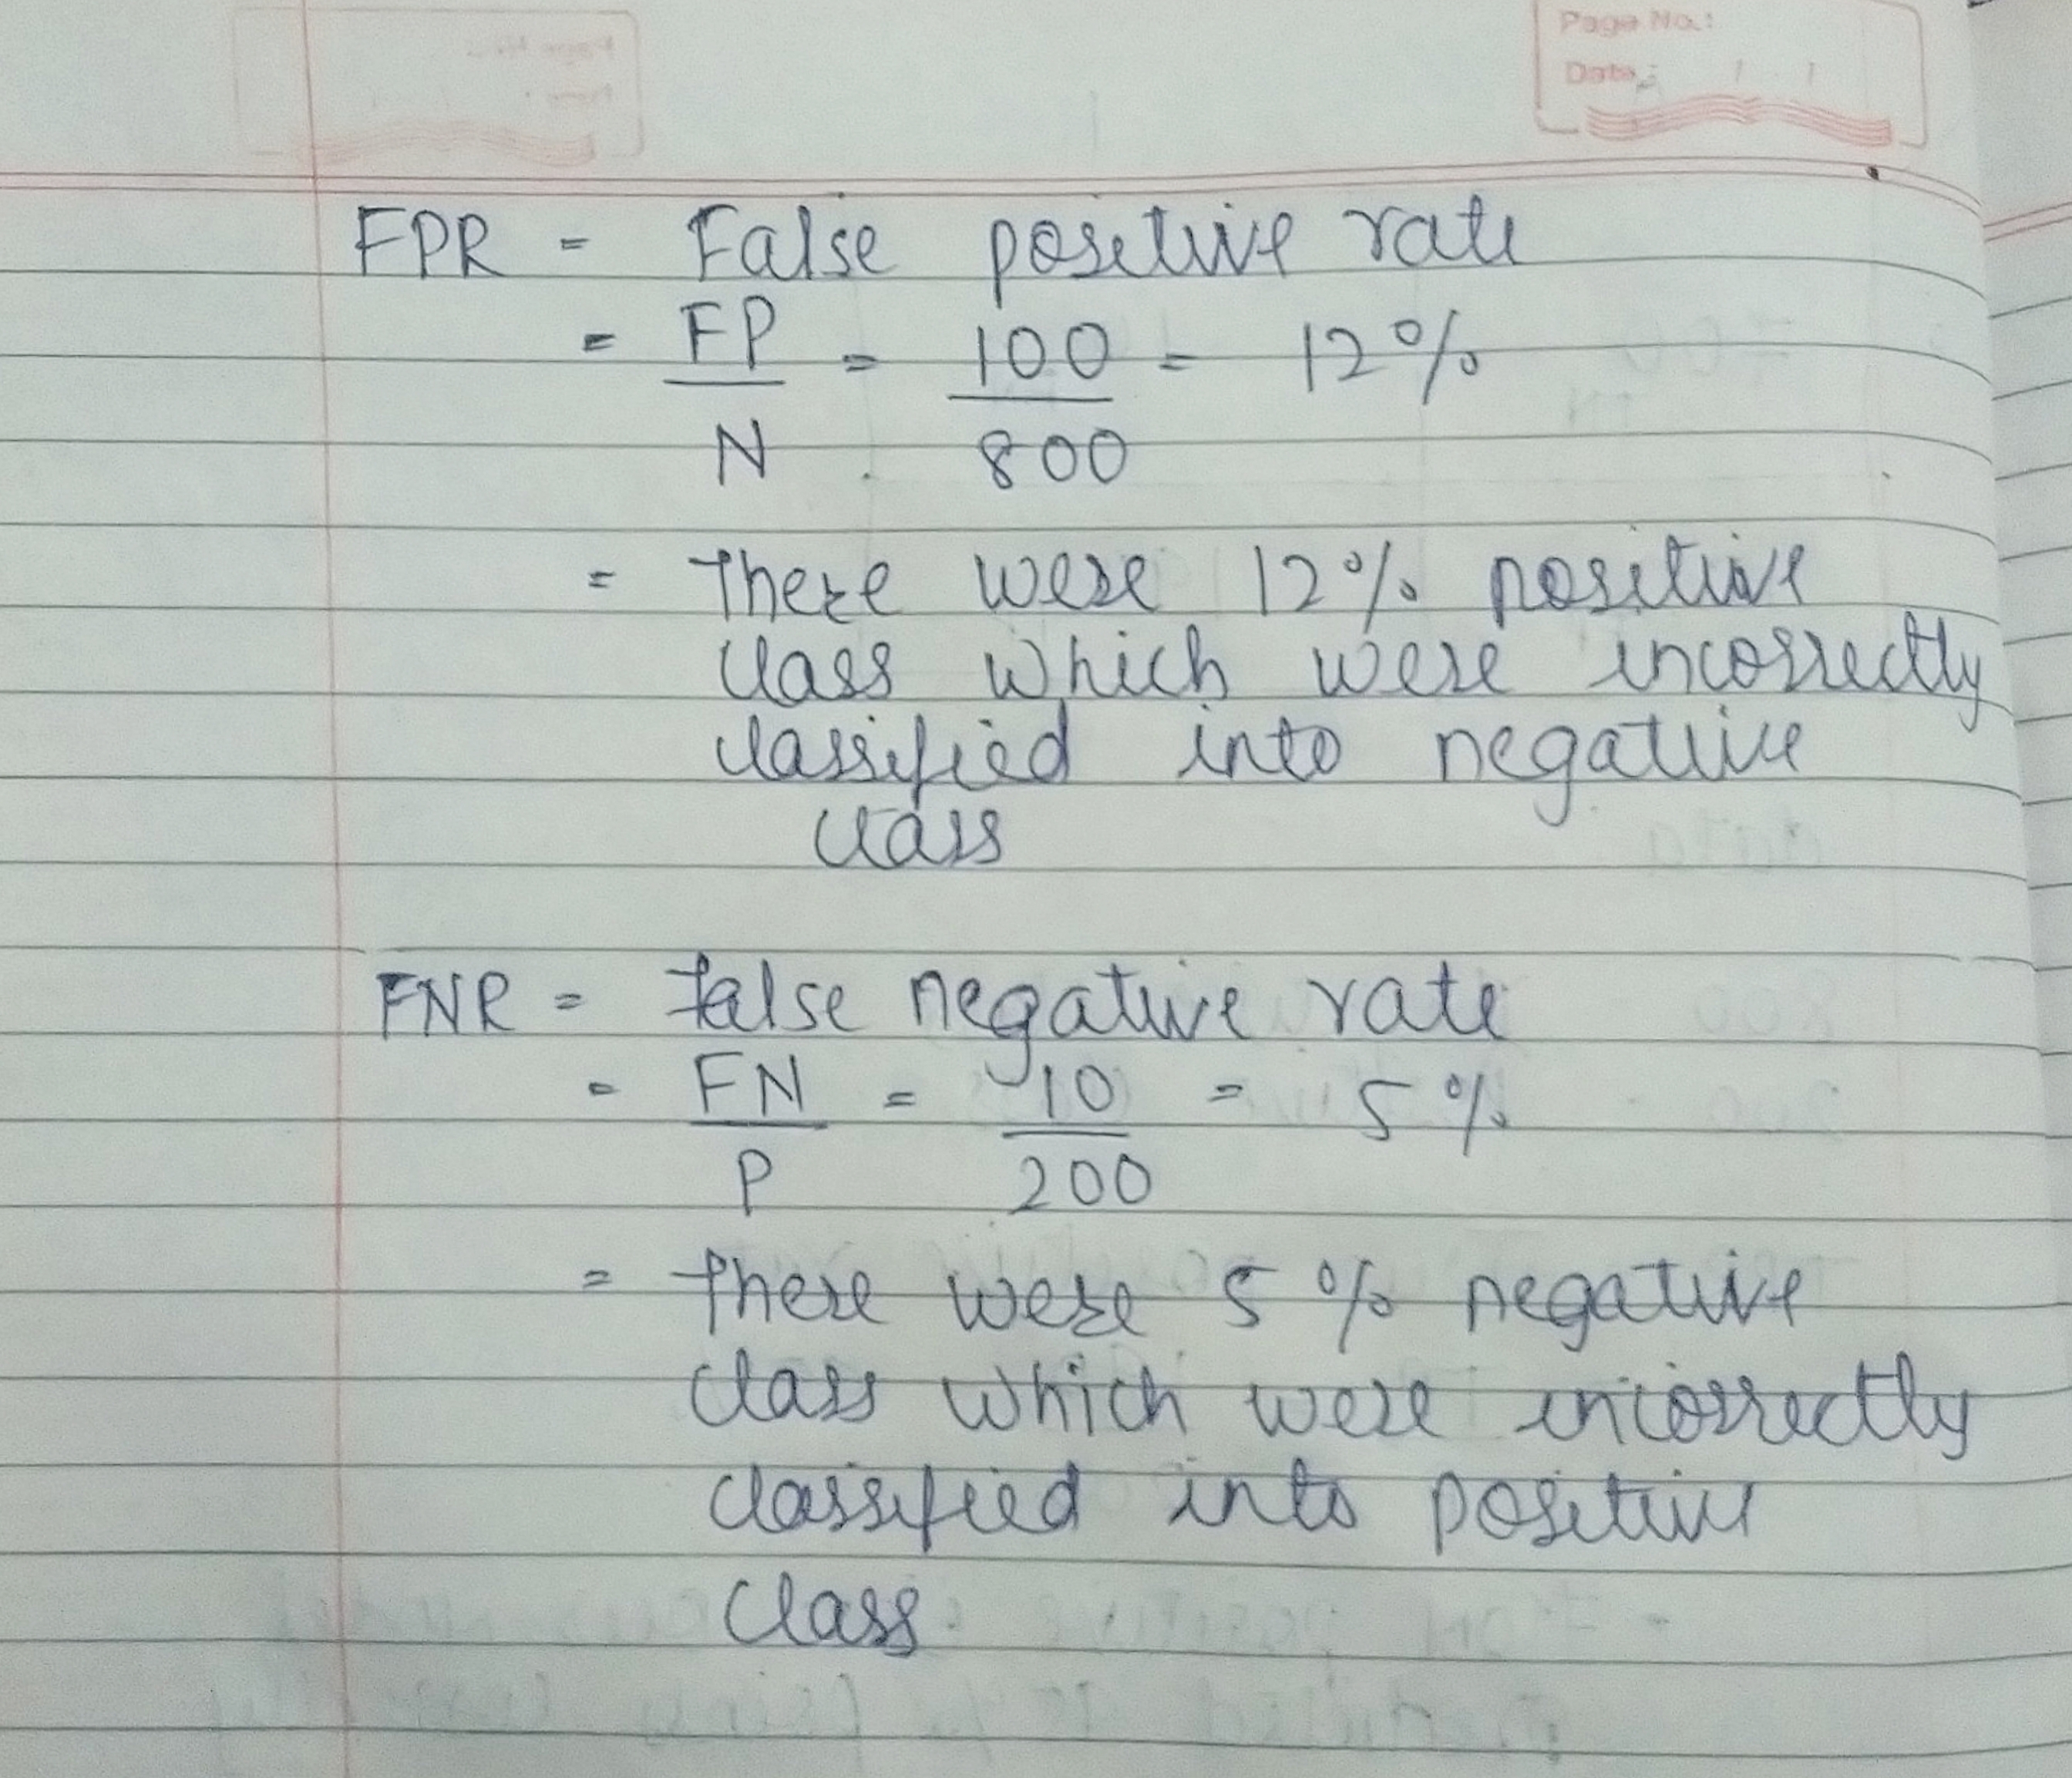 Page No.:
Date: / /
FPR = False positive rate
= FP = 100 = 12%
N 800
= There were 12% positive
class which were incorrectly
classified into negative
class
FNR = False negative rate
= FN = 10 = 5%
P 200
= There were 5% negative
class which were incorrectly
classified into positive
class.